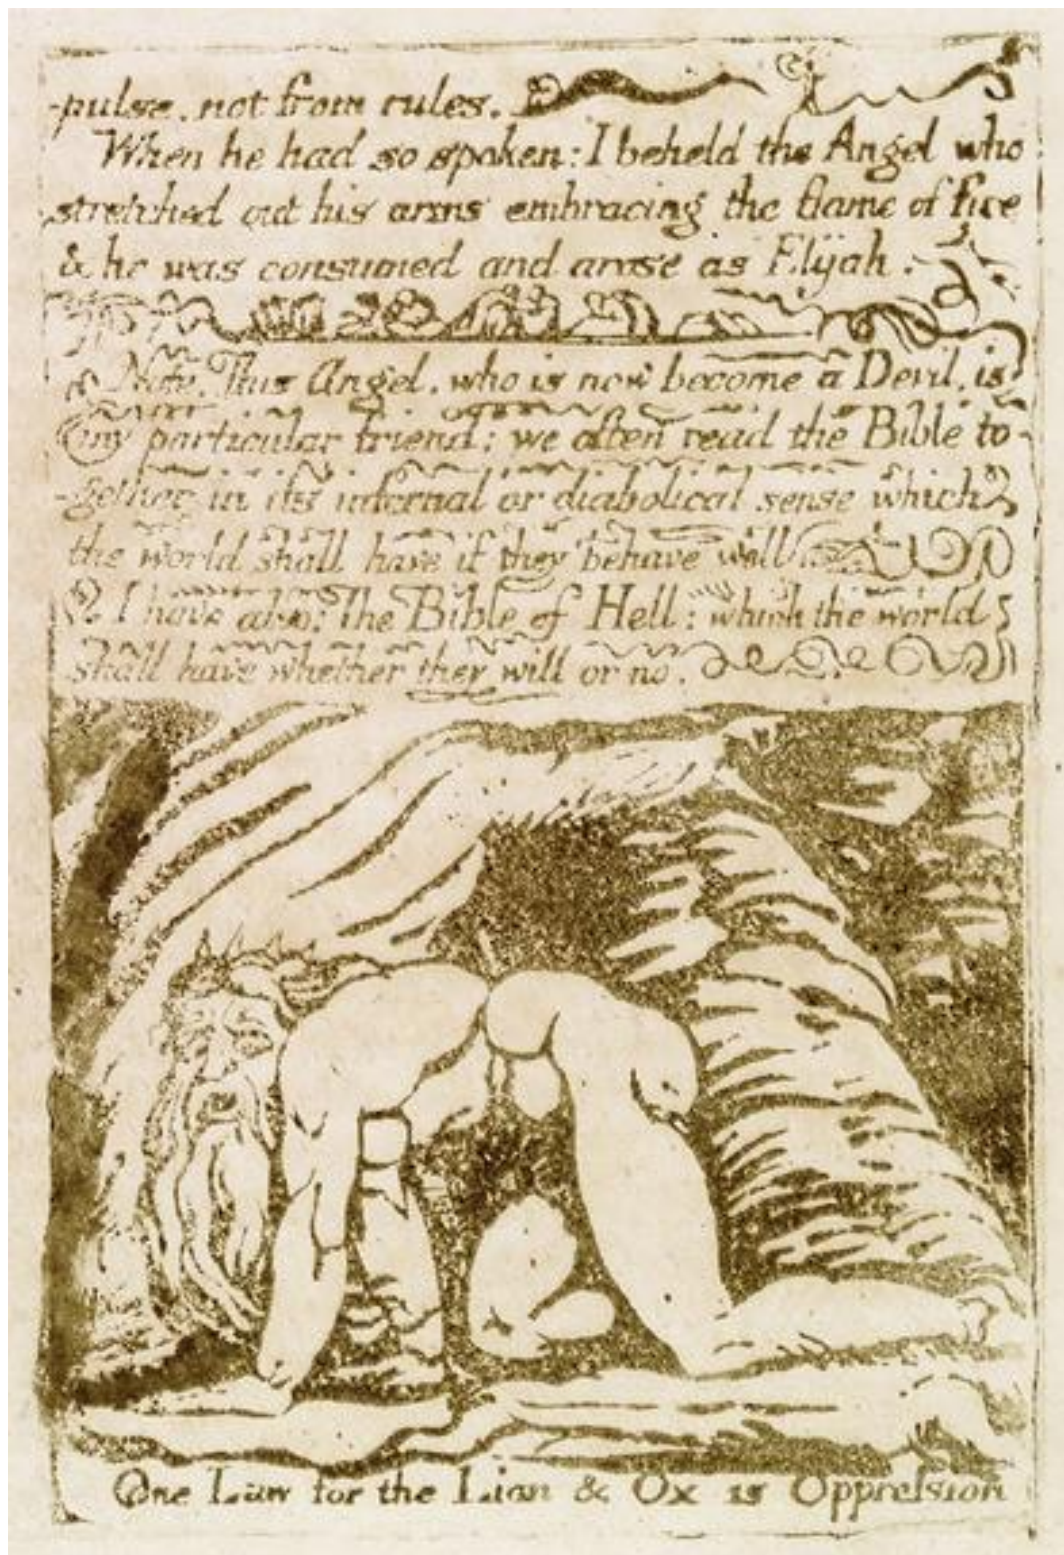 -pulse, not from rules.
When he had so spoken: I beheld the Angel who
stretched out his arms embracing the flame of fire
& he was consumed and arose as Elijah.
Note. This Angel, who is now become a Devil, is
my particular friend: we often read the Bible to-
-gether in its infernal or diabolical sense which
the world shall have if they behave well
I have also: The Bible of Hell: which the world
shall have whether they will or no.
One Law for the Lion & Ox is Oppression